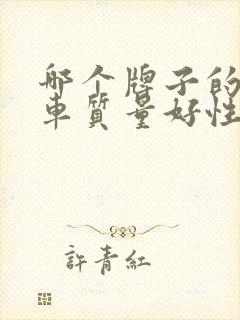 哪个牌子的
車質量好性
許青紅